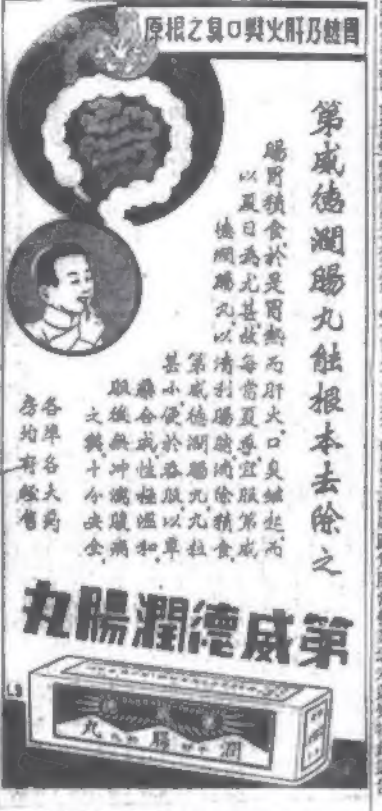 胃熱及肝火與口臭之根原
第威德潤腸丸能根本去除之
腸胃積食於是胃熱而肝火口臭繼起而
以夏日為尤甚故每當夏季宜服第威
德潤腸丸以清利腸臟消除積食
第威德潤腸丸丸粒
甚小便於吞服以草
藥合成性極溫和
服後無沖瀉腹痛
之弊十分安全
各埠各大药
房均有經售
第威德潤腸丸
潤腸丸